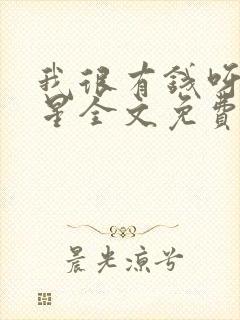 我很有钱呀
星全文免费
晨光凉兮